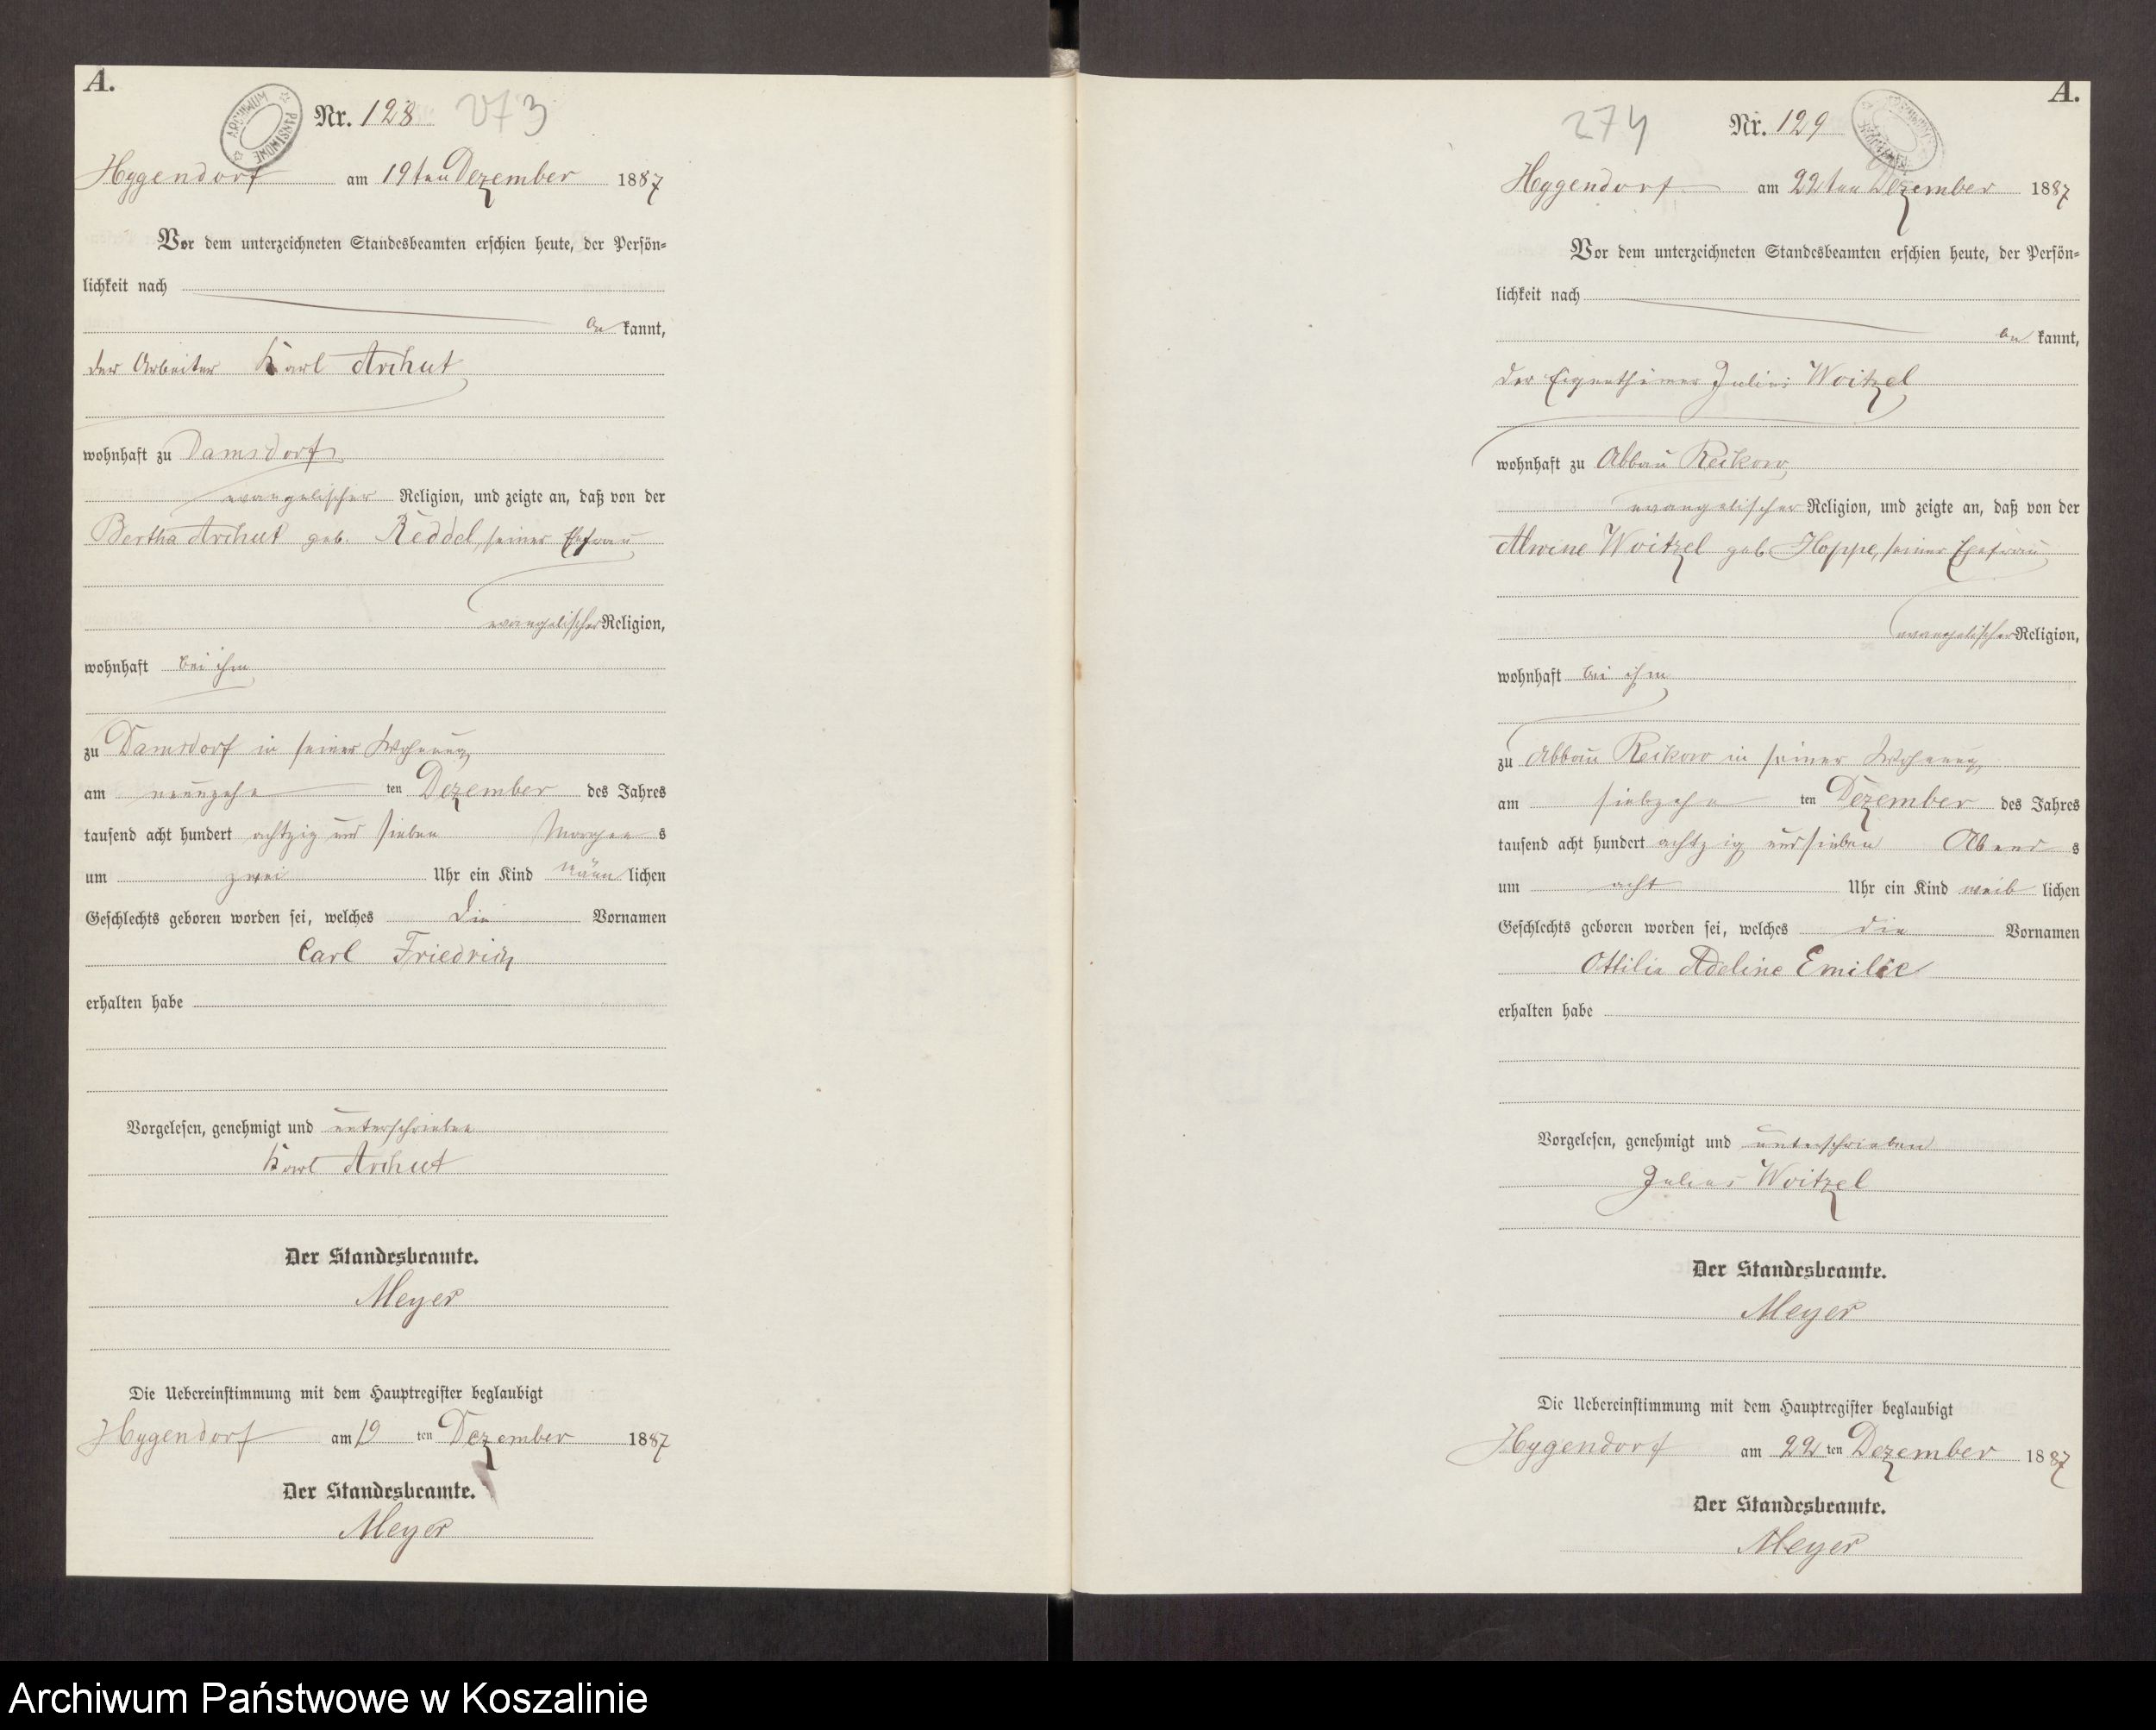 A.
ARCHIWUM PAŃSTWOWE
Nr. 128 273
Hygendorf am 19ten Dezember 1887
Vor dem unterzeichneten Standesbeamten erschien heute, der Persön-
lichkeit nach
be kannt,
der Arbeiter Karl Archut
wohnhaft zu Damsdorf
evangelischer Religion, und zeigte an, daß von der
Bertha Archut geb. Reddel, seiner Ehefrau
evangelischer Religion,
wohnhaft bei ihm
zu Damsdorf in seiner Wohnung
am neunzehn ten Dezember des Jahres
tausend acht hundert achtzig und sieben Morgen s
um zwei Uhr ein Kind männ lichen
Geschlechts geboren worden sei, welches die Vornamen
Carl Friedrich
erhalten habe
Vorgelesen, genehmigt und unterschrieben
Karl Archut
Der Standesbeamte.
Meyer
Die Uebereinstimmung mit dem Hauptregister beglaubigt
Hygendorf am 19 ten Dezember 1887
Der Standesbeamte.
Meyer
A.
274 Nr. 129
Hygendorf am 22ten Dezember 1887
Vor dem unterzeichneten Standesbeamten erschien heute, der Persön-
lichkeit nach
be kannt,
der Eigenthümer Julius Woitzel
wohnhaft zu Abbau Reckow
evangelischer Religion, und zeigte an, daß von der
Alwine Woitzel geb Hoppe, seiner Ehefrau
evangelischer Religion,
wohnhaft bei ihm
zu Abbau Reckow in seiner Wohnung
am siebzehn ten Dezember des Jahres
tausend acht hundert achtzig und sieben Abend s
um acht Uhr ein Kind weib lichen
Geschlechts geboren worden sei, welches die Vornamen
Ottilie Adeline Emilie
erhalten habe
Vorgelesen, genehmigt und unterschrieben
Julius Woitzel
Der Standesbeamte.
Meyer
Die Uebereinstimmung mit dem Hauptregister beglaubigt
Hygendorf am 22 ten Dezember 1887
Der Standesbeamte.
Meyer
Archiwum Państwowe w Koszalinie